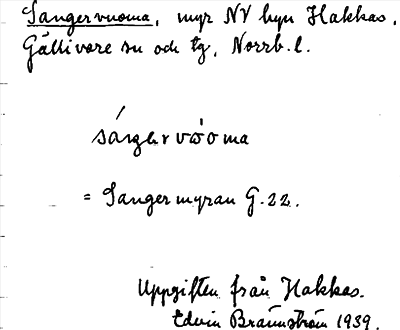 Sangervuoma, myr NV byn Hakkas,
Gällivare sn och tg, Norrb. l.
sáŋgɘrvo̊oma
= Sangermyran G. 22.
Uppgiften från Hakkas.
Edvin Brännström 1939.